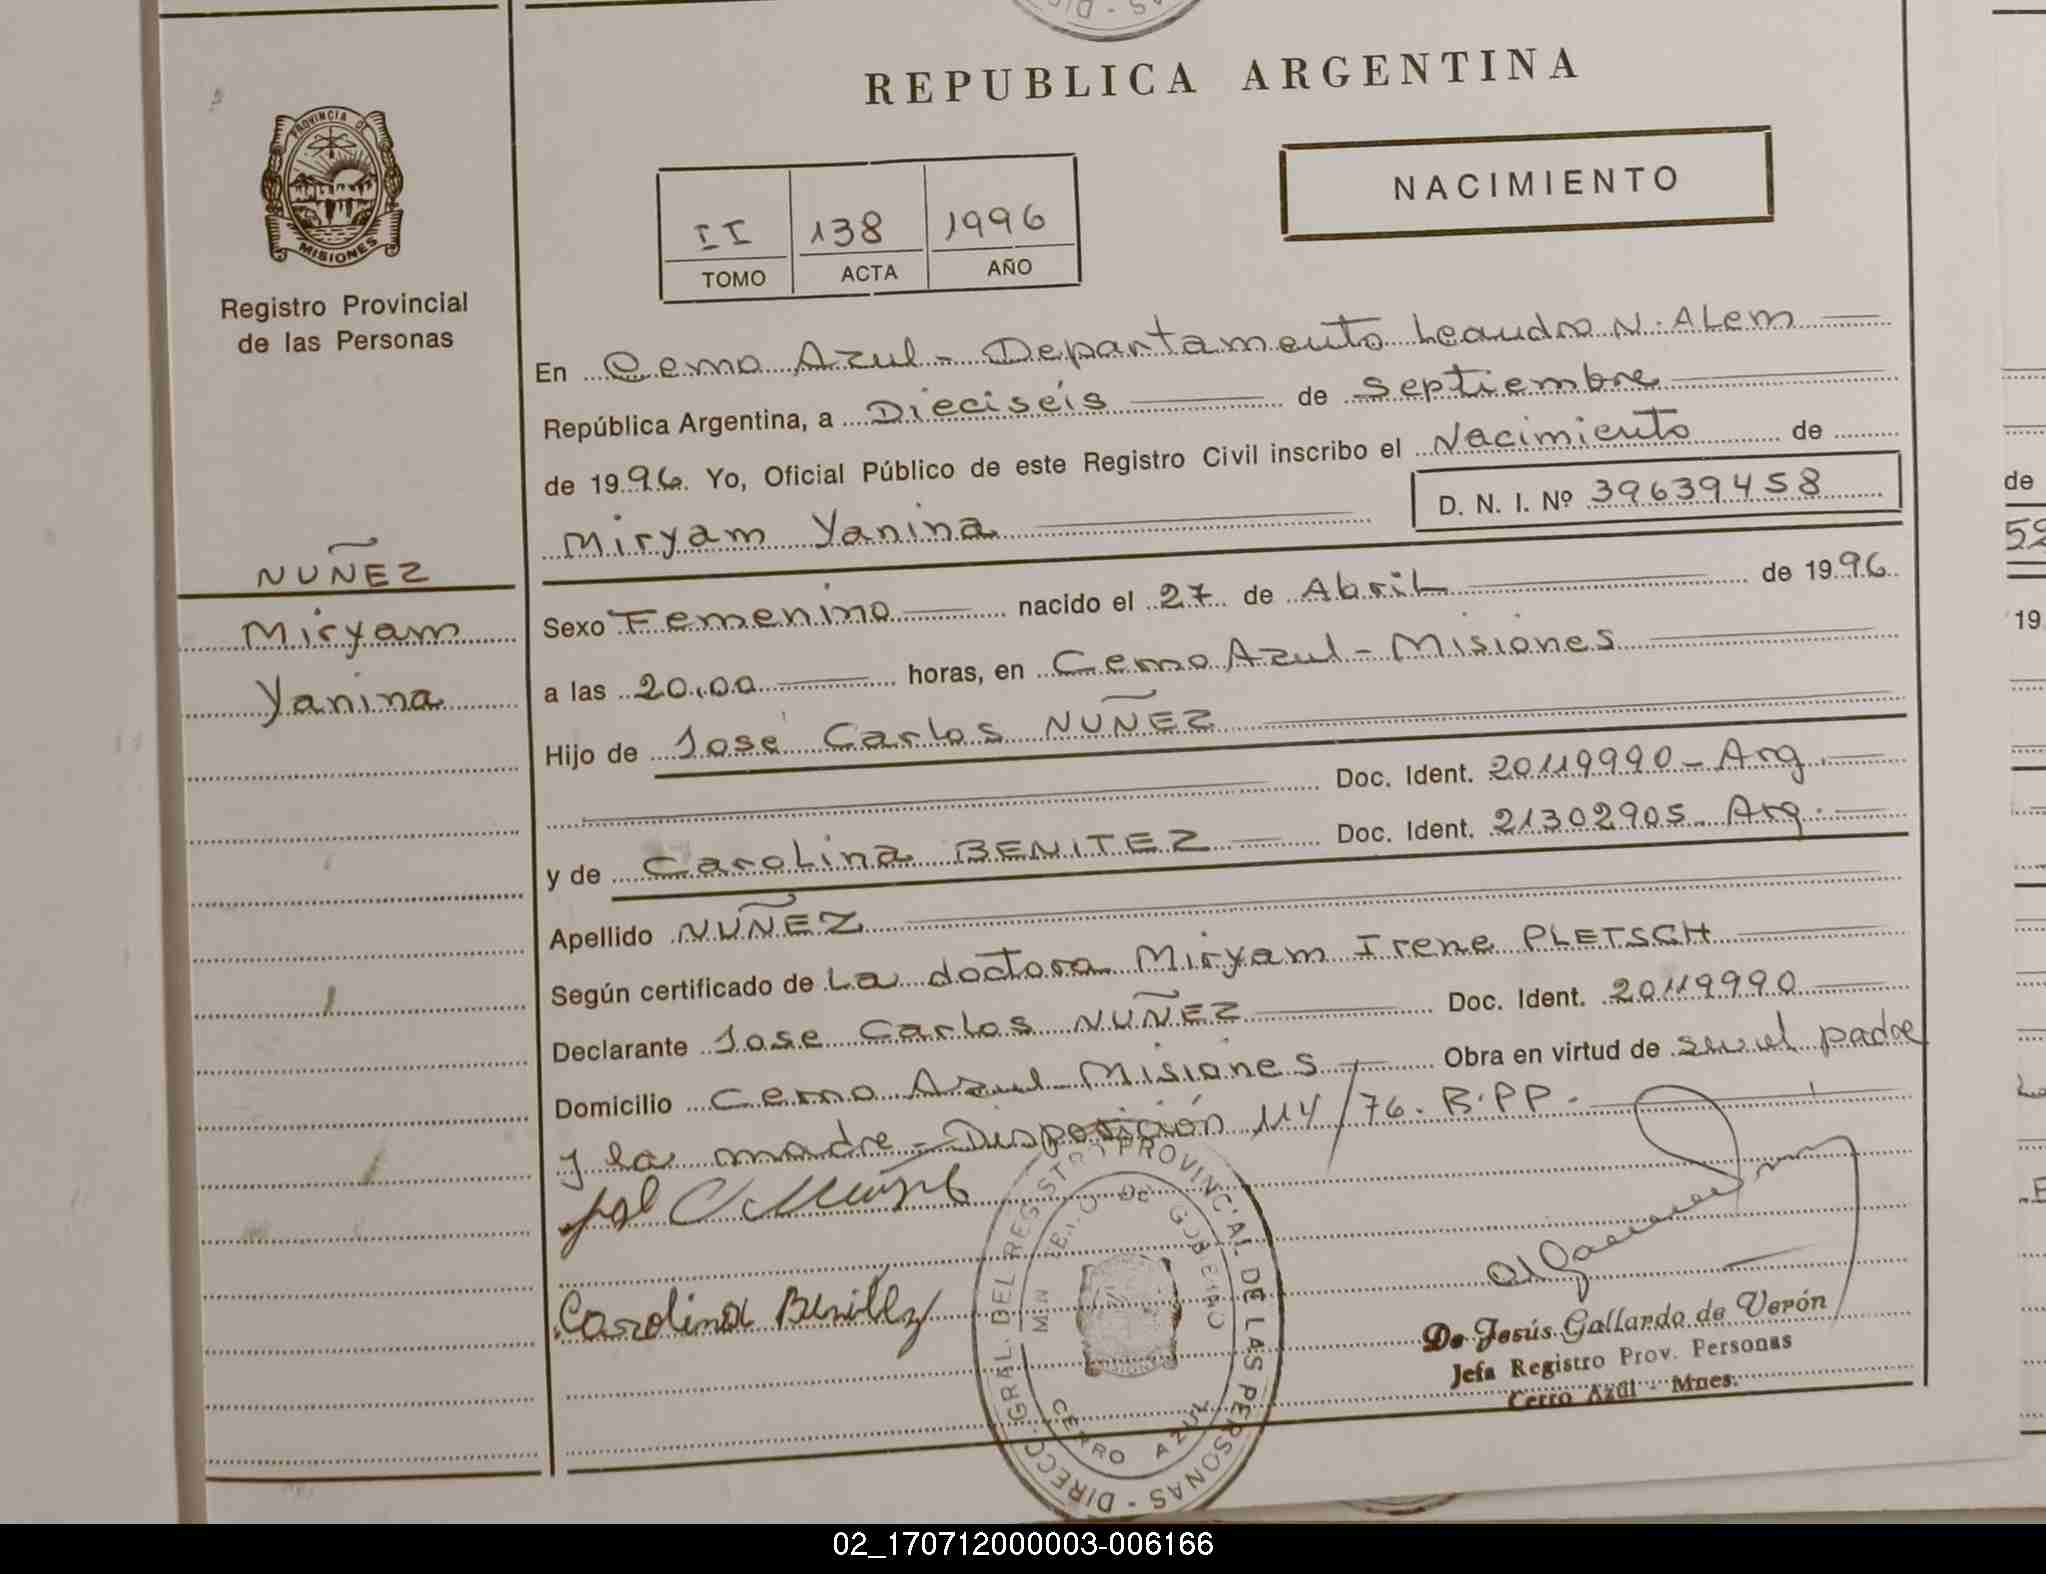 REPUBLICA ARGENTINA
PROVINCIA DE
MISIONES
Registro Provincial
de las Personas
NACIMIENTO
II 138 1996
TOMO ACTA AÑO
En Cerro Azul - Departamento Leandro N. ALem
República Argentina, a Dieciséis de Septiembre
de 1996. Yo, Oficial Público de este Registro Civil inscribo el Nacimiento de
Miryam Yanina D. N. I. Nº 39639458
NUÑEZ
Miryam
Yanina
Sexo Femenino nacido el 27 de Abril de 1996
a las 20,00 horas, en Cerro Azul - Misiones
Hijo de José Carlos NUÑEZ
Doc. Ident. 20119990 - Arg.
y de Carolina BENITEZ Doc. Ident. 21302905 - Arg.
Apellido NUÑEZ
Según certificado de La doctora Miryam Irene PLETSCH
Declarante Jose Carlos NUÑEZ Doc. Ident. 20119990
Domicilio Cerro Azul - Misiones Obra en virtud de ser el padre
y la madre - Disposición 114/76. R.PP.
Carolina Benitez
DIRECC. GRAL. DEL REGISTRO PROVINCIAL DE LAS PERSONAS
DE GOBIERNO
CERRO AZUL
De Jesús Gallardo de Verón
Jefa Registro Prov. Personas
Cerro Azúl - Mnes.
de
19
02_170712000003-006166